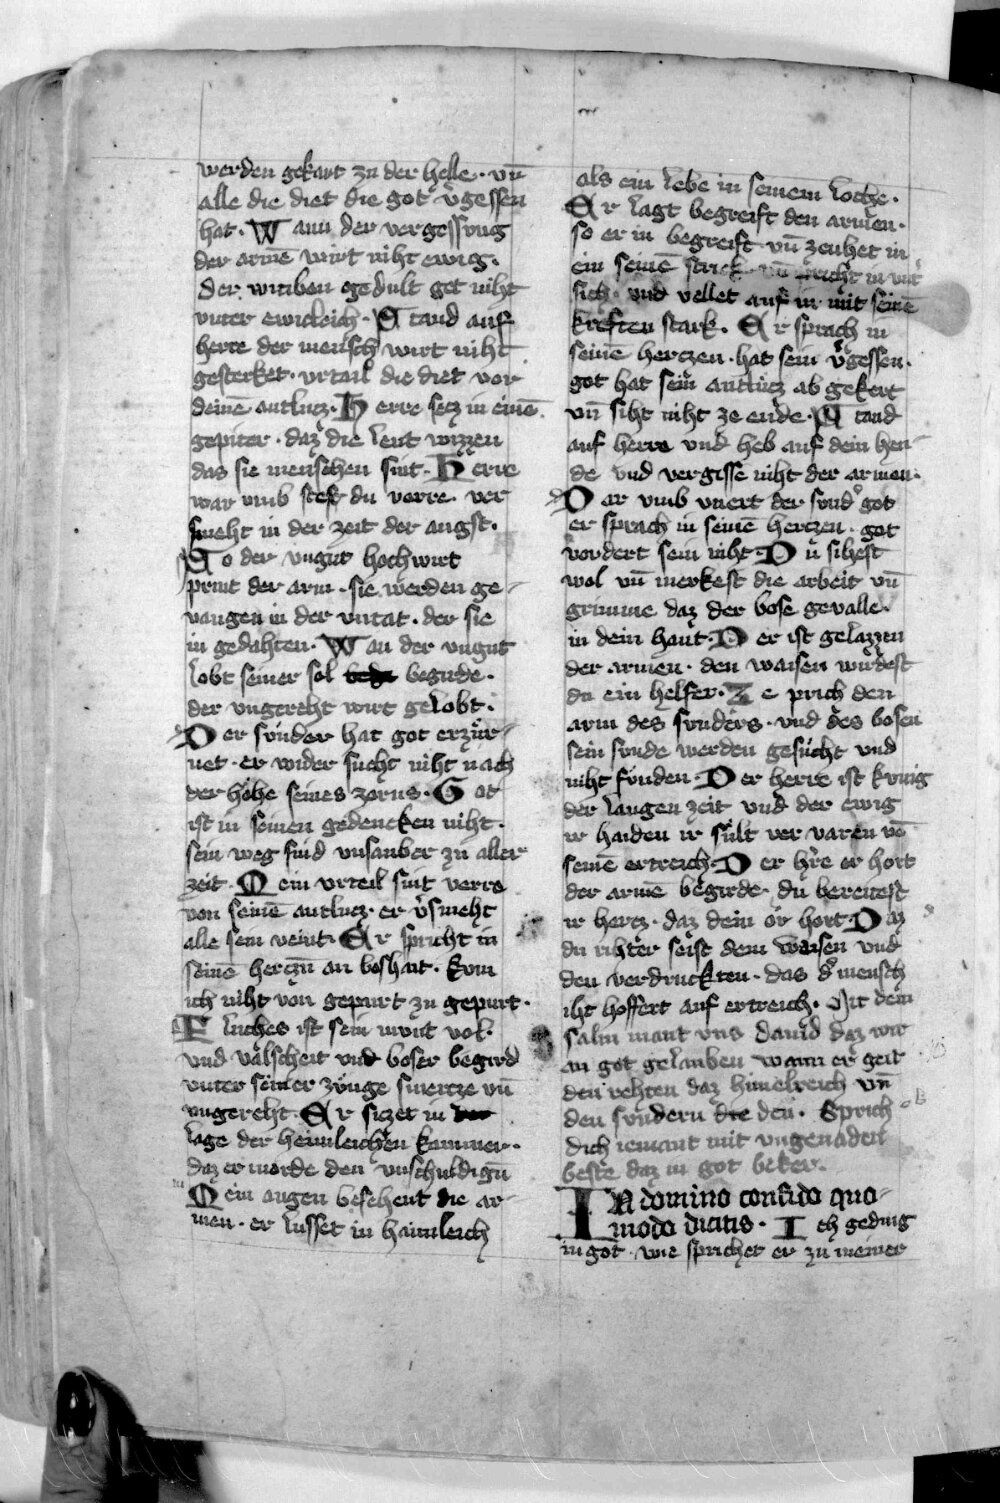 werden gekart zu der helle · vn̄
alle die diet die got v̉gessen
hat · Wann der vergessung
der armē wirt niht ewig ·
der armben gedult get niht
vnter ewicleich · Stand auf
herre der mensch wirt niht
gesterket · vrtail die diet vor
deinē antlucz · Herre secz in einē
gepiter · daz die leut wizzen
das sie menschen sint · Herre
war vmb stest du verre · ver
smeht in der zeit der angst ·
So der vngut hochwirt
print der arm · sie werden ge-
vangen in der vntat · der sie
in gedahten · Wan der vngut
lobt seiner sol begirde ·
der vngereht wirt gelobt ·
Der sünder hat got erzür-
net · er wider sucht niht nach
der höhe seines zorns · Got
ist in seinen gedencken niht ·
sein weg sind vnsauber zu aller
zeit · Dein vrteil sint verre
von seinē antlucz · er v̉smeht
alle sein veint · Er spricht in
seinē herczn̄ an boshait · kum
ich niht von gepurt zu gepurt ·
Fluches ist sein munt vol ·
vnd valscheit vnd boser begird
vnter seiner zunge smercze vn̄
vngereht · Er siczet in der
lage der heimleichen kammer ·
daz er morde den vnschuldign̄
Sein augen besehent die ar-
men · er lusset in haimleich
als ein lebe in seinem loche ·
Er lagt begreift den armen ·
so er in begreift vn̄ zeuhet in
ein seinē strick vn̄ in vnt̉
sich · vnd vellet auf in mit seinē
kreften stark · Er sprach in
seinē herczen · hat sein v̉gessen ·
got hat sein antlucz ab gekert
vn̄ siht niht ze ende · Stand
auf herre vnd heb auf dein hen-
de vnd vergisse niht der armen ·
Dar vmb vnert der sund̉ got
er sprach in seinē herczen · got
vordert sein niht · Du sihest
wol vn̄ merkest die arbeit vn̄
grimme daz der bose gevalle ·
in dein hant · Der ist gelazzen
der armen · den waisen wirdest
du ein helfer · Ze prich den
arm des sunders · vnd des bosen
sein sunde werden gesucht vnd
niht funden · Der herre ist kunig
der langen zeit vnd der ewig
ir haiden ir sült ver varen vō
seinē ertreich · Der h̉re er hort
der armē begirde · du bereitest
ir hercz · daz dein or hort · Daz
du rihter seist dem waisen vnd
den verdruckten · das d̉ mensch
iht hoffert auf ertreich · Mit dem
salm mant vns dauid daz wir
an got gelauben wann er geit
den rehten daz himelreich vn̄
den sundern den · Sprich
dich iemant mit vngenaden
beste daz in got beker ·
IN domino confido quo-
modo dicitis · Ich geding
in got · wie sprichet er zu meiner